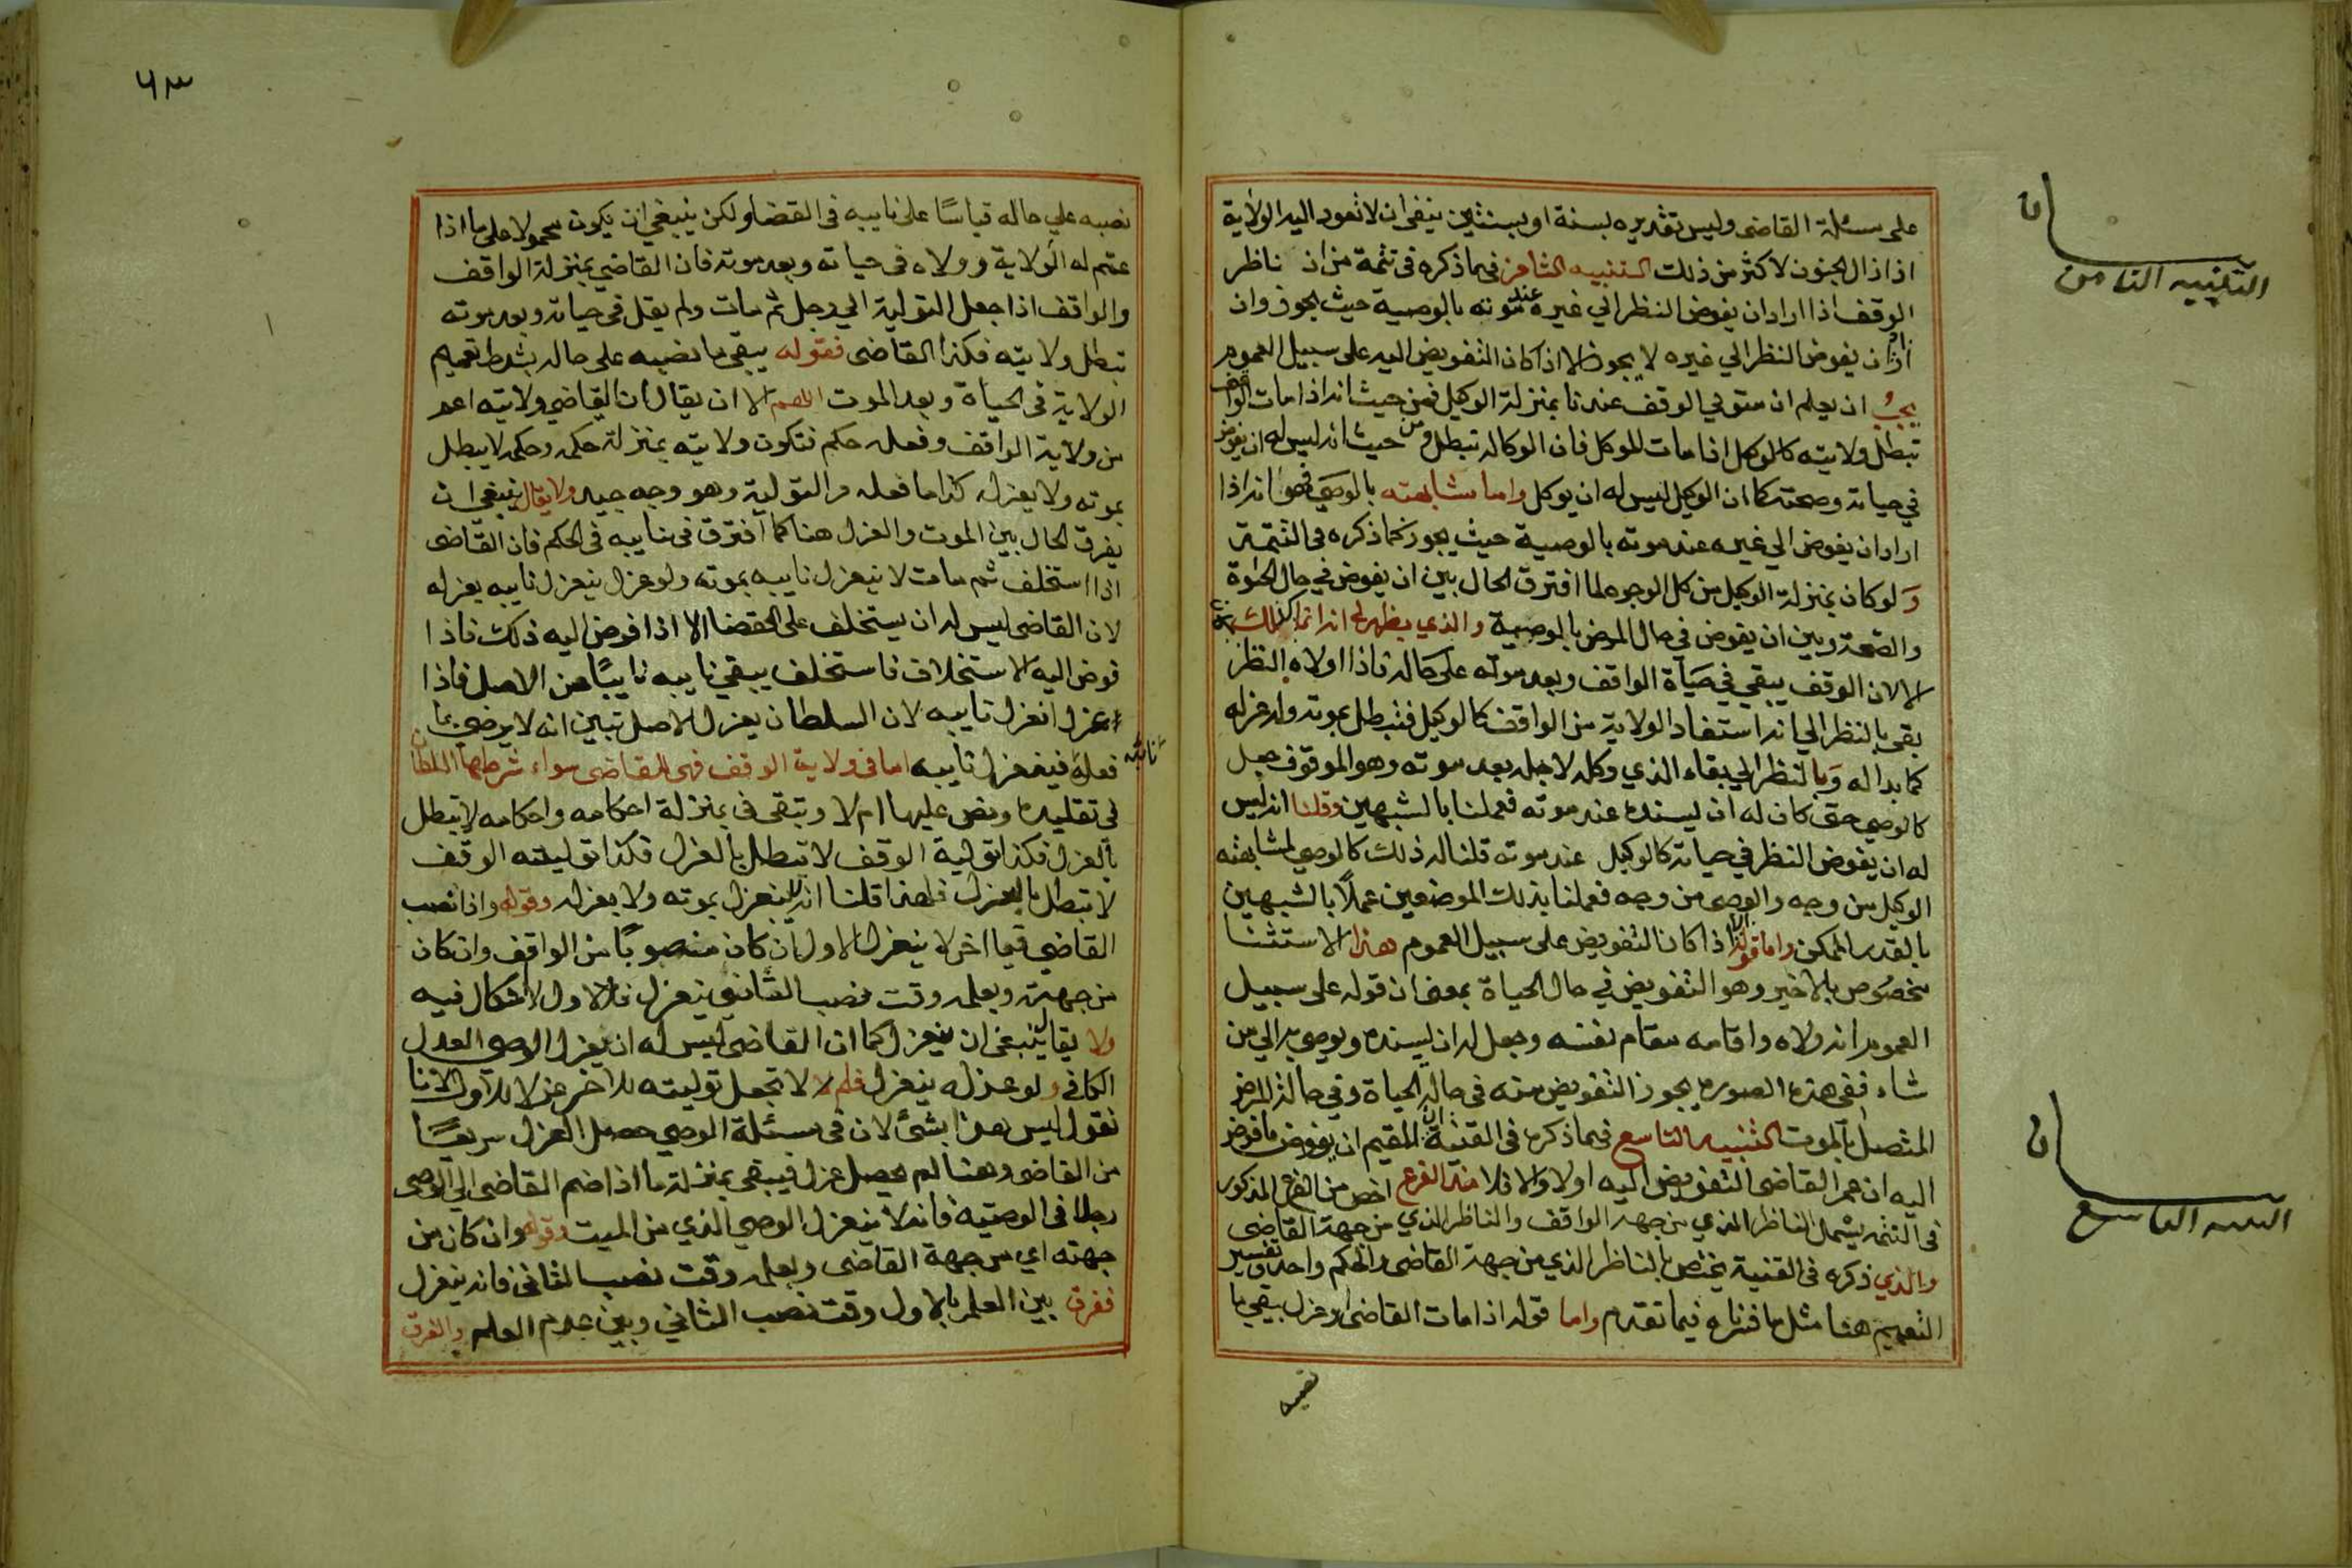 على مسئلة القاضى وليس تقديره بسنة او بسنتين ينفى ان لا تعود اليه الولاية
اذا زال الجنون لاكثر من ذلك التنبيه الثامن فيما ذكره فى تتمة من ان ناظر
الوقف اذا اراد ان يفوض النظر الي غيره عند موته بالوصية حيث يجوز وان
اراد ان يفوض النظر الي غيره لا يجوز الا اذا كان التفويض اليه على سبيل العموم
يجب ان يعلم ان متولي الوقف عندنا بمنزلة الوكيل فمن حيث انه اذا مات الواقف
تبطل ولايته كالوكيل اذا مات الموكل فان الوكاله تبطل ومن حيث انه ليس له ان يفوض
في حياته وصحته كما ان الوكيل ليس له ان يوكل واما مشابهته بالوصي فهو انه اذا
اراد ان يفوض الي غيره عند موته بالوصية حيث يجوز كما ذكره فى التتمة
ولو كان بمنزلة الوكيل من كل الوجوه لما افترق الحال بين ان يفوض في حال الحيوة
والصحة وبين ان يفوض في حال المرض بالوصية والذي يظهر لي انه انما كان كذلك
لان الوقف يبقي في حياة الواقف وبعد موته على حاله فاذا اولاه النظر
بقي بالنظر الي انه استفاد الولاية من الواقف كالوكيل فتبطل بموته وله عزله
كما بدا له وبالنظر الي بقاء الذي وكله لاجله بعد موته وهو الموقوف جعل
كالوصي حتى كان له ان يسنده عند موته فعملنا بالشبهين وقلنا انه ليس
له ان يفوض النظر في حياته كالوكيل عند موته قلنا له ذلك كالوصي لمشابهته
الوكيل من وجه والوصى من وجه فعملنا بذلك الموضعين عملًا بالشبهين
بالقدر الممكن واما قوله الا اذا كان التفويض على سبيل العموم هذا الاستثنا
مخصوص بالاخير وهو التفويض في حال الحياة بمعنى ان قوله على سبيل
العموم انه ولاه واقامه مقام نفسه وجعل له ان يسنده ويوصي به الي من
شاء ففى هذه الصوره يجوز التفويض منه فى حالة الحياة وفي حالة المرض
المتصل بالموت التنبيه التاسع فيما ذكره فى القنية ان للقيم ان يفوض ما فوض
اليه ان عمم القاضى التفويض اليه اولا والا فلا هذا الفرع اخص من الفرع المذكور
فى التتمه يشمل الناظر الذي من جهة الواقف والناظر الذي من جهة القاضى
والذي ذكره فى القنية يختص بالناظر الذي من جهة القاضى والحكم واحد وتفسير
التعميم هنا مثل ما فسرناه فيما تقدم واما قوله اذا مات القاضى او عزل يبقي ما
نصبه
التنبيه الثامن
التنبيه التاسع
٦٣
نصبه علي حاله قياسًا على نايبه فى القضا ولكن ينبغي ان يكون محمولا على ما اذا
عمم له الولاية وولاه فى حياته وبعد موته فان القاضي بمنزلة الواقف
والواقف اذا جعل التولية الي رجل ثم مات ولم يقل فى حياته وبعد موته
تبطل ولايته فكذا القاضى فقوله يبقى ما نصبه على حاله بشرط تعميم
الولاية فى الحياة وبعد الموت اللهم الا ان يقال ان القاضي ولايته اعم
من ولاية الواقف وفعله حكم فتكون ولايته بمنزلة حكمه وحكمه لا يبطل
بموته ولا بعزله كذا ما فعله من التولية وهو وجه جيد ولا يقال ينبغي ان
يفرق الحال بين الموت والعزل هنا كما افترق فى نايبه فى الحكم فان القاضى
اذا استخلف ثم مات لا ينعزل نايبه بموته ولو عزل ينعزل نايبه بعزله
لان القاضى ليس له ان يستخلف على القضا الا اذا فوض اليه ذلك فاذا
فوض اليه الاستخلاف فاستخلف يبقي نايبه نايبًا عن الاصل فاذا
عزل انعزل نايبه لان السلطان بعزل الاصل تبين انه لا يرضى بما
فعله فينعزل نايبه اما فى ولاية الوقف فهى للقاضى سواء شرطها السلطان
فى تقليده ونص عليها ام لا وتبقى فى بمنزلة احكامه واحكامه لا تبطل
بالعزل فكذا تولية الوقف لا تبطل بالعزل فكذا توليته الوقف
لا تبطل بالعزل فلهذا قلنا انه لا ينعزل بموته ولا بعزله وقوله واذا نصب
القاضي قيما اخر لا ينعزل الاول ان كان منصوبًا من الواقف وان كان
من جهته ويعلمه وقت نصب الثاني ينعزل فالاول لا اشكال فيه
ولا يقال ينبغى ان ينعزل كما ان القاضى ليس له ان يعزل الوصي العدل
الكافى ولو عزله ينعزل فلم لا تجعل توليته للاخر عزلا للاول لانا
نقول ليس هذا بشئ لان فى مسئلة الوصي حصل العزل سريعًا
من القاضى وهنا لم يحصل عزل فيبقى بمنزلة ما اذا ضم القاضى الي الوصى
رجلا فى الوصيه فانه لا ينعزل الوصي الذي من الميت وقوله وان كان من
جهته اي من جهة القاضى ويعلمه وقت نصب الثاني فانه ينعزل
ففرق بين العلم بالاول وقت نصب الثاني وبين عدم العلم والفرق